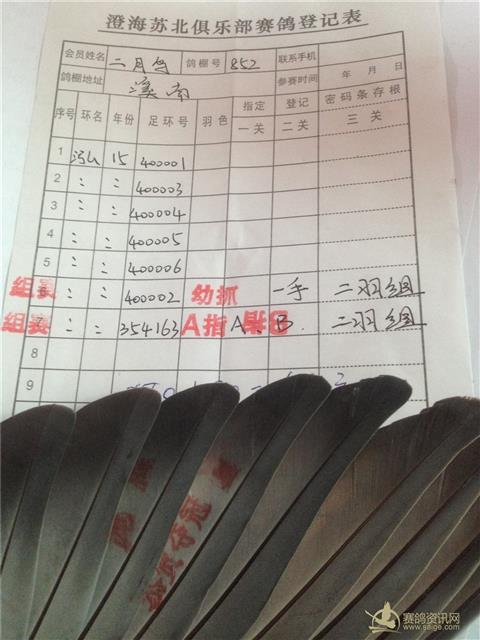 澄海苏北俱乐部赛鸽登记表
会员姓名 二月鸟 鸽棚号 852 联系手机
鸽棚地址 溪南 参赛时间 年 月 日
序号 环名 年份 足环号 羽色 指定 登记 密码条存根
一关 二关 三关
1 汕 15 400001
2 〃 〃 400003
3 〃 〃 400004
4 〃 〃 400005
5 〃 〃 400006
组赛 〃 〃 400002 幼抓 一手 二羽组
组赛 7 〃 〃 354163 A指 A B 二羽组
8
9
赛鸽资讯网
www.saige.com